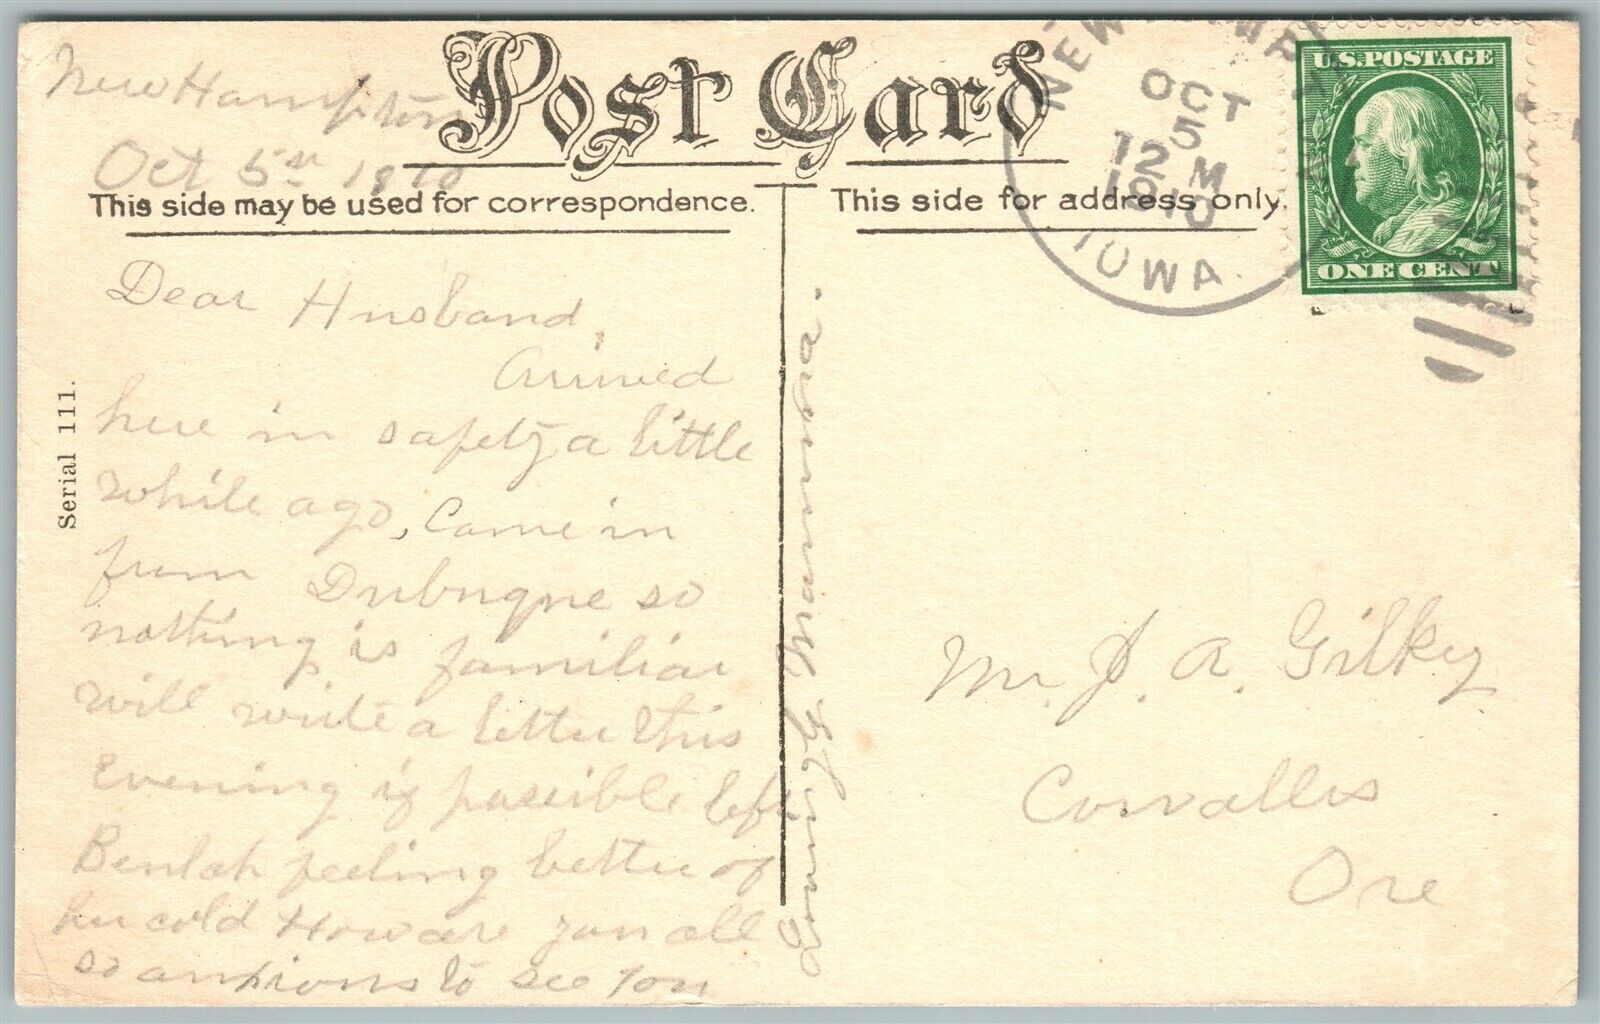 New Hampton
Oct 5th 1910
Post Card
This side may be used for correspondence.
This side for address only.
NEW HAMPTON
OCT
5
12 M
1910
IOWA.
U.S. POSTAGE
ONE CENT
Serial 111.
Dear Husband,
Arrived
here in safety a little
while ago, Came in
from Dubuque so
nothing is familiar
will write a letter this
evening if possible left
Beulah feeling better of
her cold How are you all
so anxious to see you
Mr. J. A. Gilkey
Corvallis
Ore